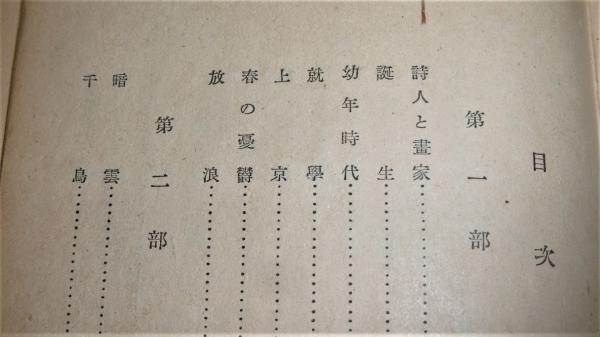 目次
第一部
詩人と畫家
誕生
幼年時代
就學
上京
春の憂鬱
放浪
第二部
暗雲
千鳥